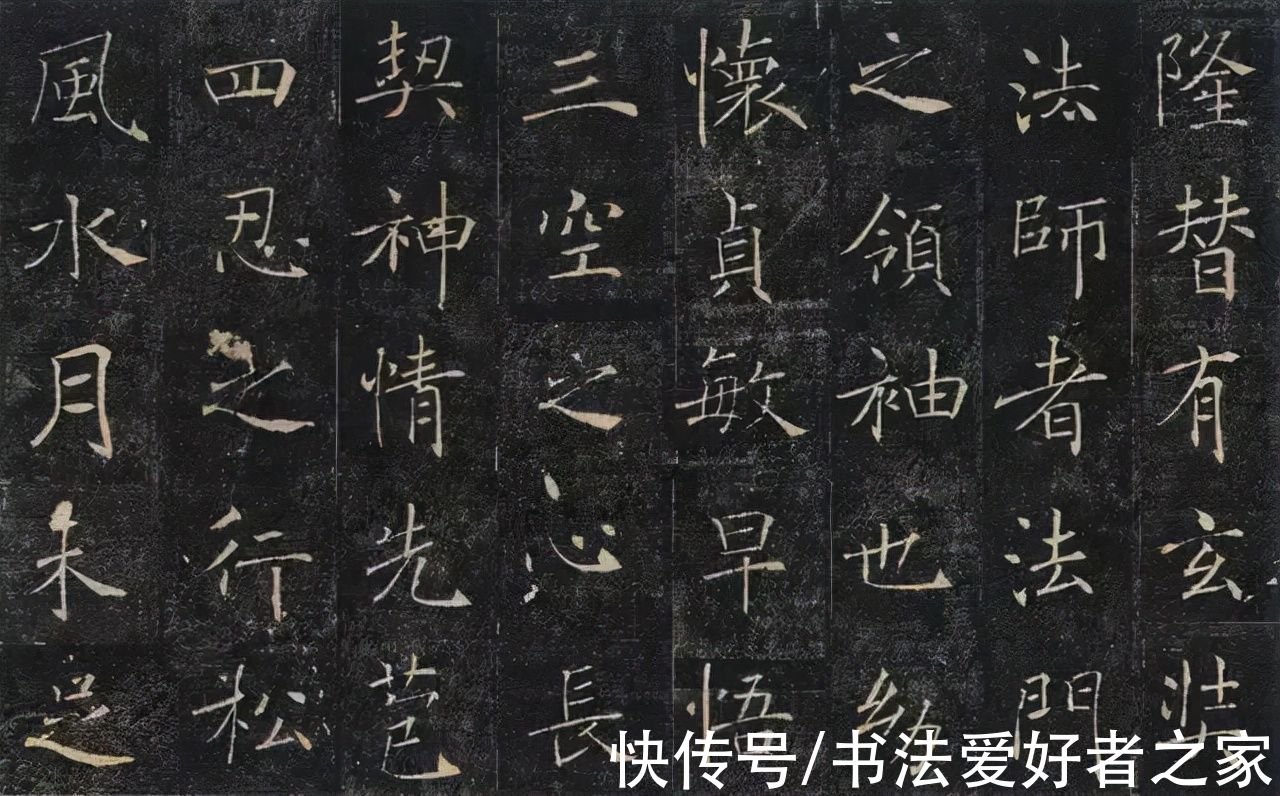 隆替有玄奘
法師者法門
之領袖也幼
懷貞敏早悟
三空之心長
契神情先苞
四忍之行松
風水月未足
快传号/书法爱好者之家